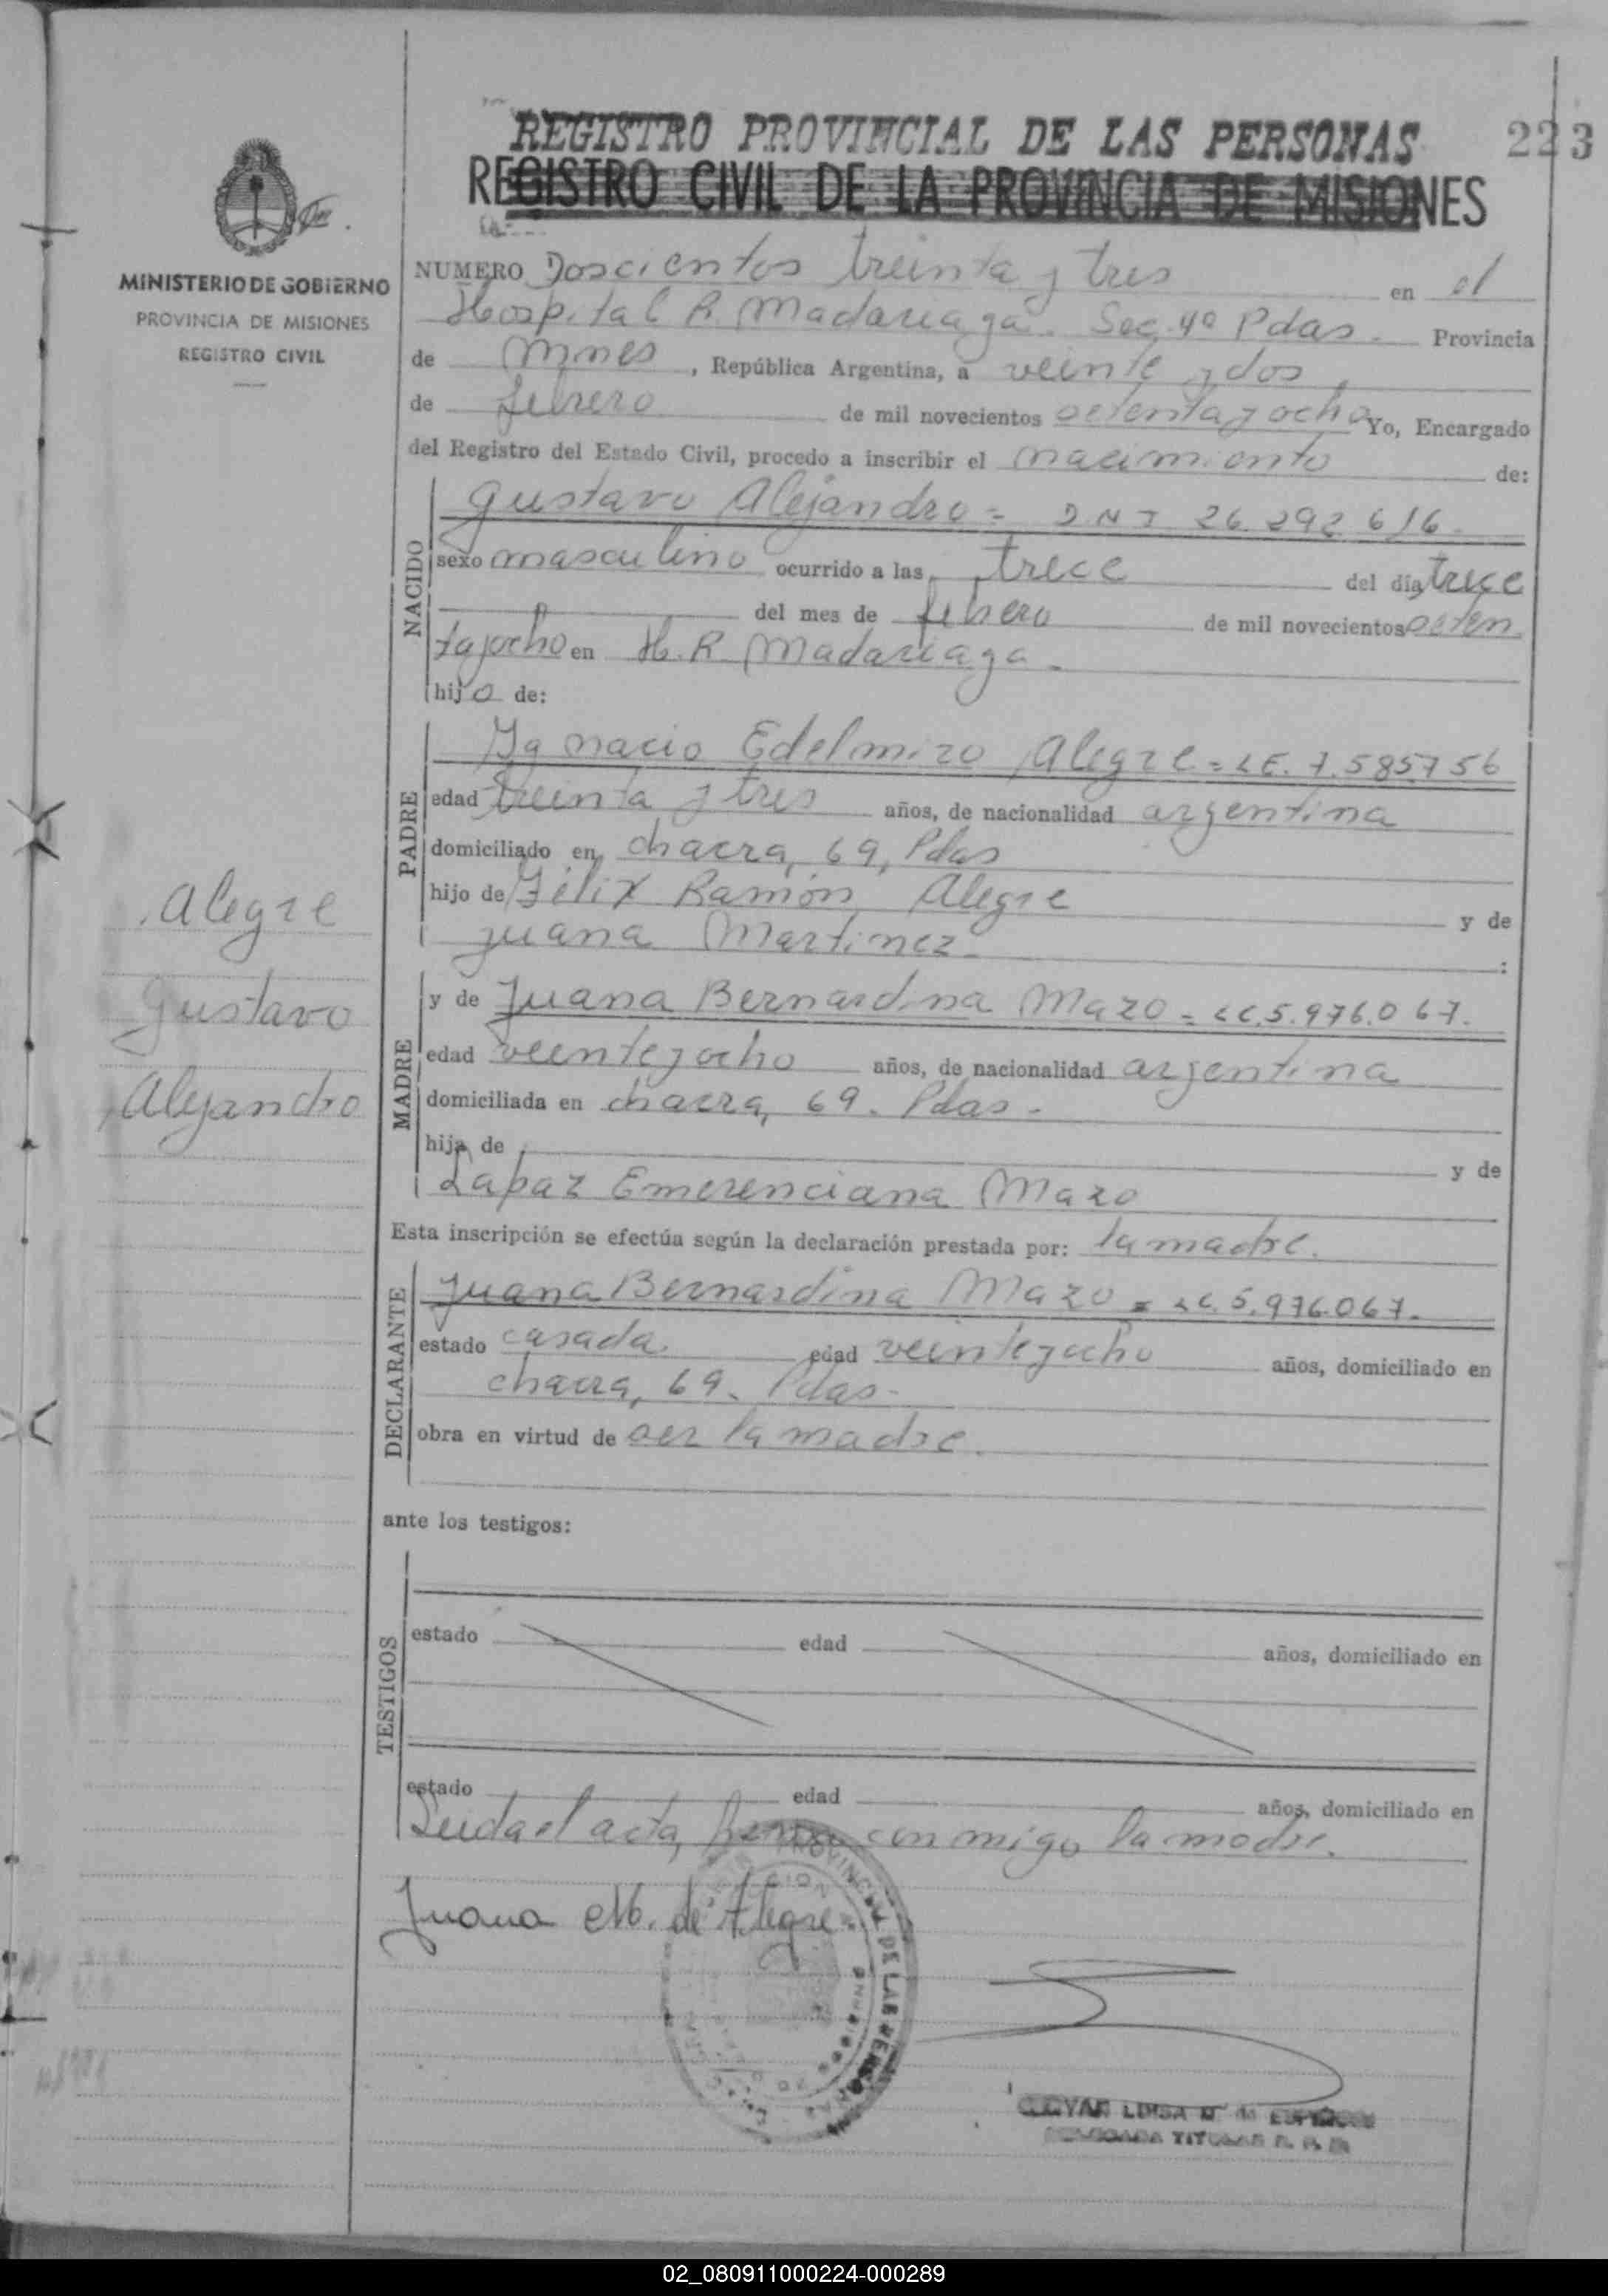 REGISTRO PROVINCIAL DE LAS PERSONAS
223
REGISTRO CIVIL DE LA PROVINCIA DE MISIONES
MINISTERIO DE GOBIERNO
PROVINCIA DE MISIONES
REGISTRO CIVIL
NUMERO Doscientos treinta y tres en el
Hospital R. Madariaga. Sec. 4ª Pdas. Provincia
de Mnes, República Argentina, a veinte y dos
de febrero de mil novecientos setenta y ocho Yo, Encargado
del Registro del Estado Civil, procedo a inscribir el nacimiento de:
NACIDO
Gustavo Alejandro = DNI 26.292.616.
sexo masculino ocurrido a las trece del día trece
del mes de febrero de mil novecientos seten
ta y ocho en H. R. Madariaga.
hijo de:
PADRE
Ygnacio Edelmiro Alegre = LE. 7.585.756
edad treinta y tres años, de nacionalidad argentina
domiciliado en chacra, 69, Pdas
hijo de Félix Ramón Alegre y de
Juana Martinez. :
Alegre
Gustavo
Alejandro
MADRE
y de Juana Bernardina Mazo = LC. 5.976.067.
edad veinte y ocho años, de nacionalidad argentina
domiciliada en chacra, 69. Pdas.
hija de y de
Lapaz Emerenciana Mazo
Esta inscripción se efectúa según la declaración prestada por: la madre.
DECLARANTE
Juana Bernardina Mazo = LC. 5.976.067.
estado casada edad veinte y ocho años, domiciliado en
chacra, 69. Pdas.
obra en virtud de ser la madre.
ante los testigos:
TESTIGOS
estado edad años, domiciliado en
estado edad años, domiciliado en
Leida el acta, firma conmigo la madre.
Juana M. de Alegre
PROVINCIAL DE LAS PERSONAS
LUISA M. de
TITULAR R. P. P.
02_080911000224-000289